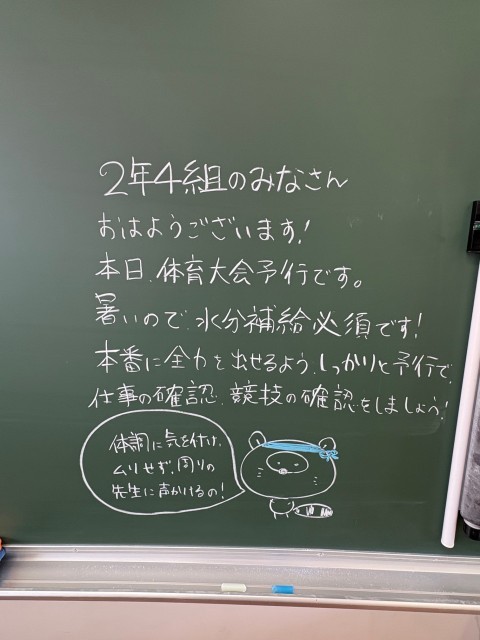 2年4組のみなさん
おはようございます!
本日、体育大会予行です。
暑いので、水分補給必須です!
本番に全力を出せるよう、しっかりと予行で、
仕事の確認、競技の確認をしましょう!
体調に気を付け、
ムリせず、周りの
先生に声かけるの!